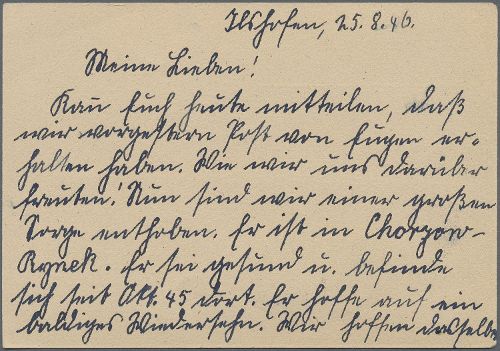 Ilshofen, 25.8.46.
Meine Lieben!
Kann Euch heute mitteilen, daß
wir vorgestern Post von Eugen er-
halten haben. Wie wir uns darüber
freuten! Nun sind wir einer großen
Sorge enthoben. Er ist in Chorzow-
Rynek. Er sei gesund u. befinde
sich seit Okt. 45 dort. Er hoffe auf ein
baldiges Wiedersehn. Wir hoffen dasselbe